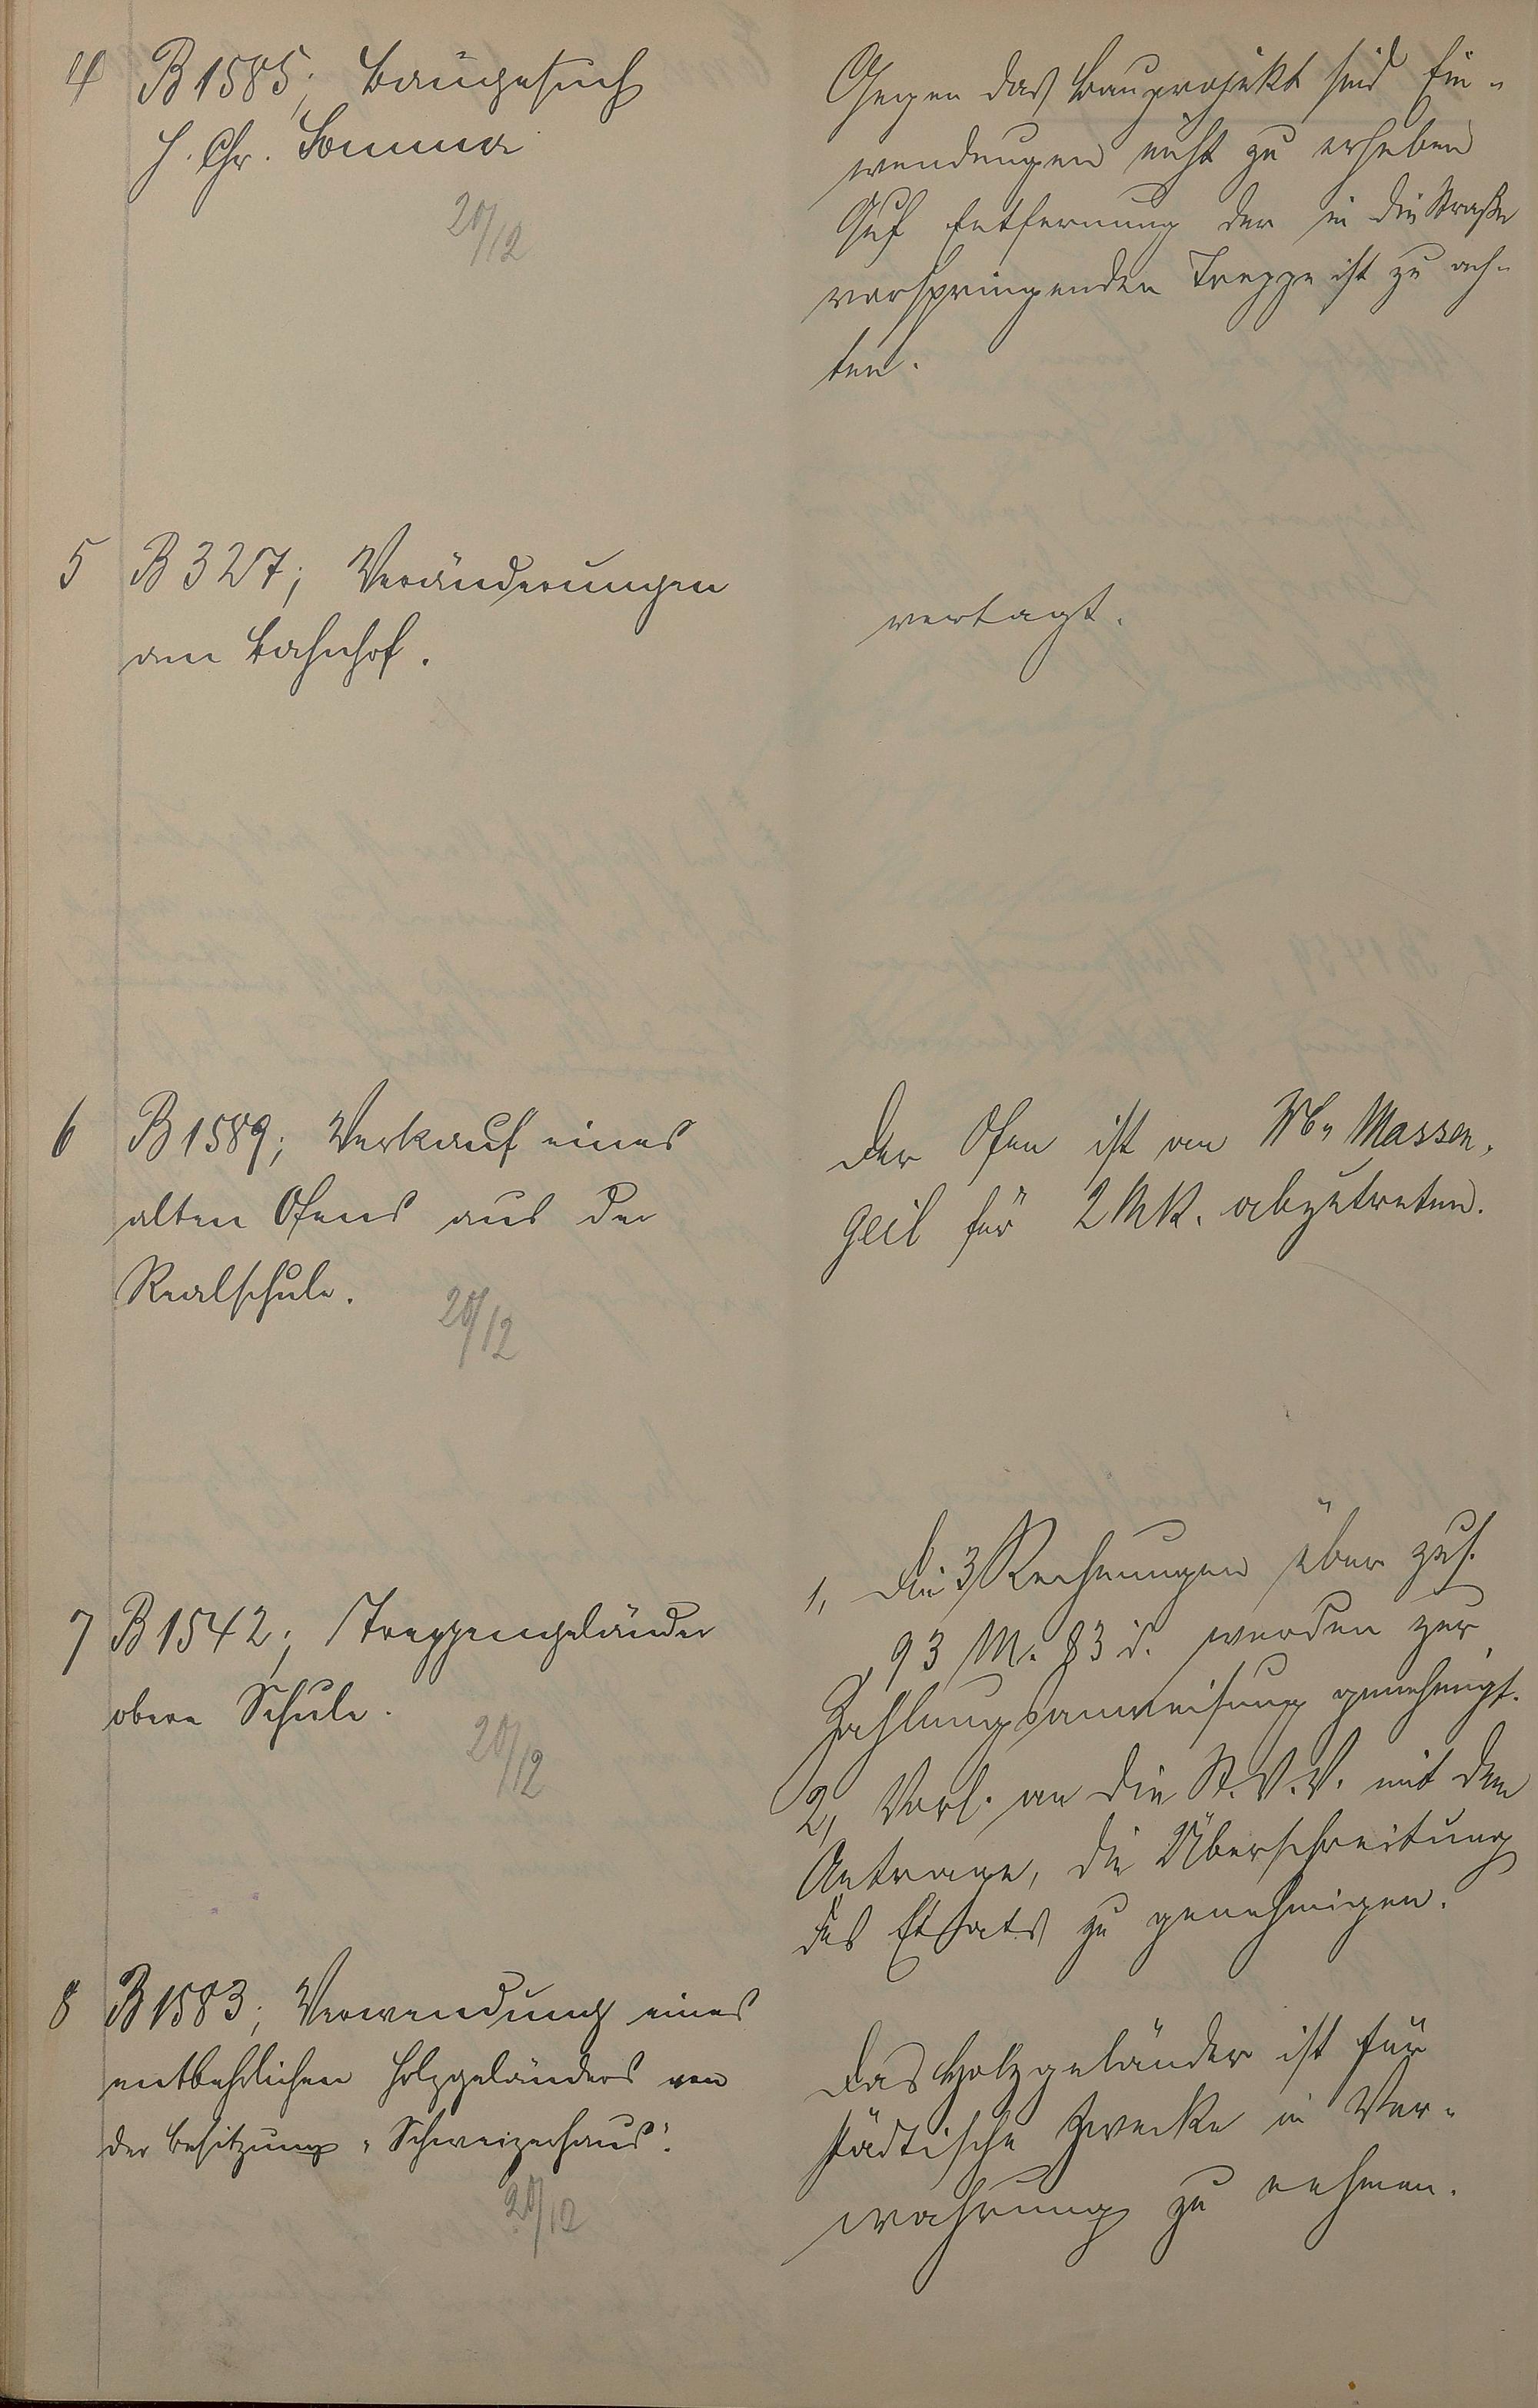 4 B 1585; Baugesuch
H. Chr. Sommer
20/12
Gegen das Bauprojekt sind Ein-
wendungen nicht zu erheben
Auf Entfernung der in die Straße
vorspringenden Treppe ist zu ach-
ten.
5 B 327; Veränderungen
am Bahnhof.
vertagt.
6 B 1589; Verkauf eines
alten Ofens aus der
Realschule.
20/12
Der Ofen ist an Massen-
geil für 2 Mk. abzutreten.
7 B 1542; Treppengeländer
obere Schule.
20/12
1, Die 3 Rechnungen über zus.
93 M. 83 d. werden zur
Zahlungsanweisung genehmigt.
2, Vorl. an die St.V.V. mit dem
Antrage, die Überschreitung
des Etsats zu genehmigen.
8 B 1583; Verwendung eines
entbehrlichen Holzgeländers von
der Besitzung "Schweizerhaus".
20/12
Das Holzgeländer ist für
städtische Zwecke in Ver-
wahrung zu nehmen.